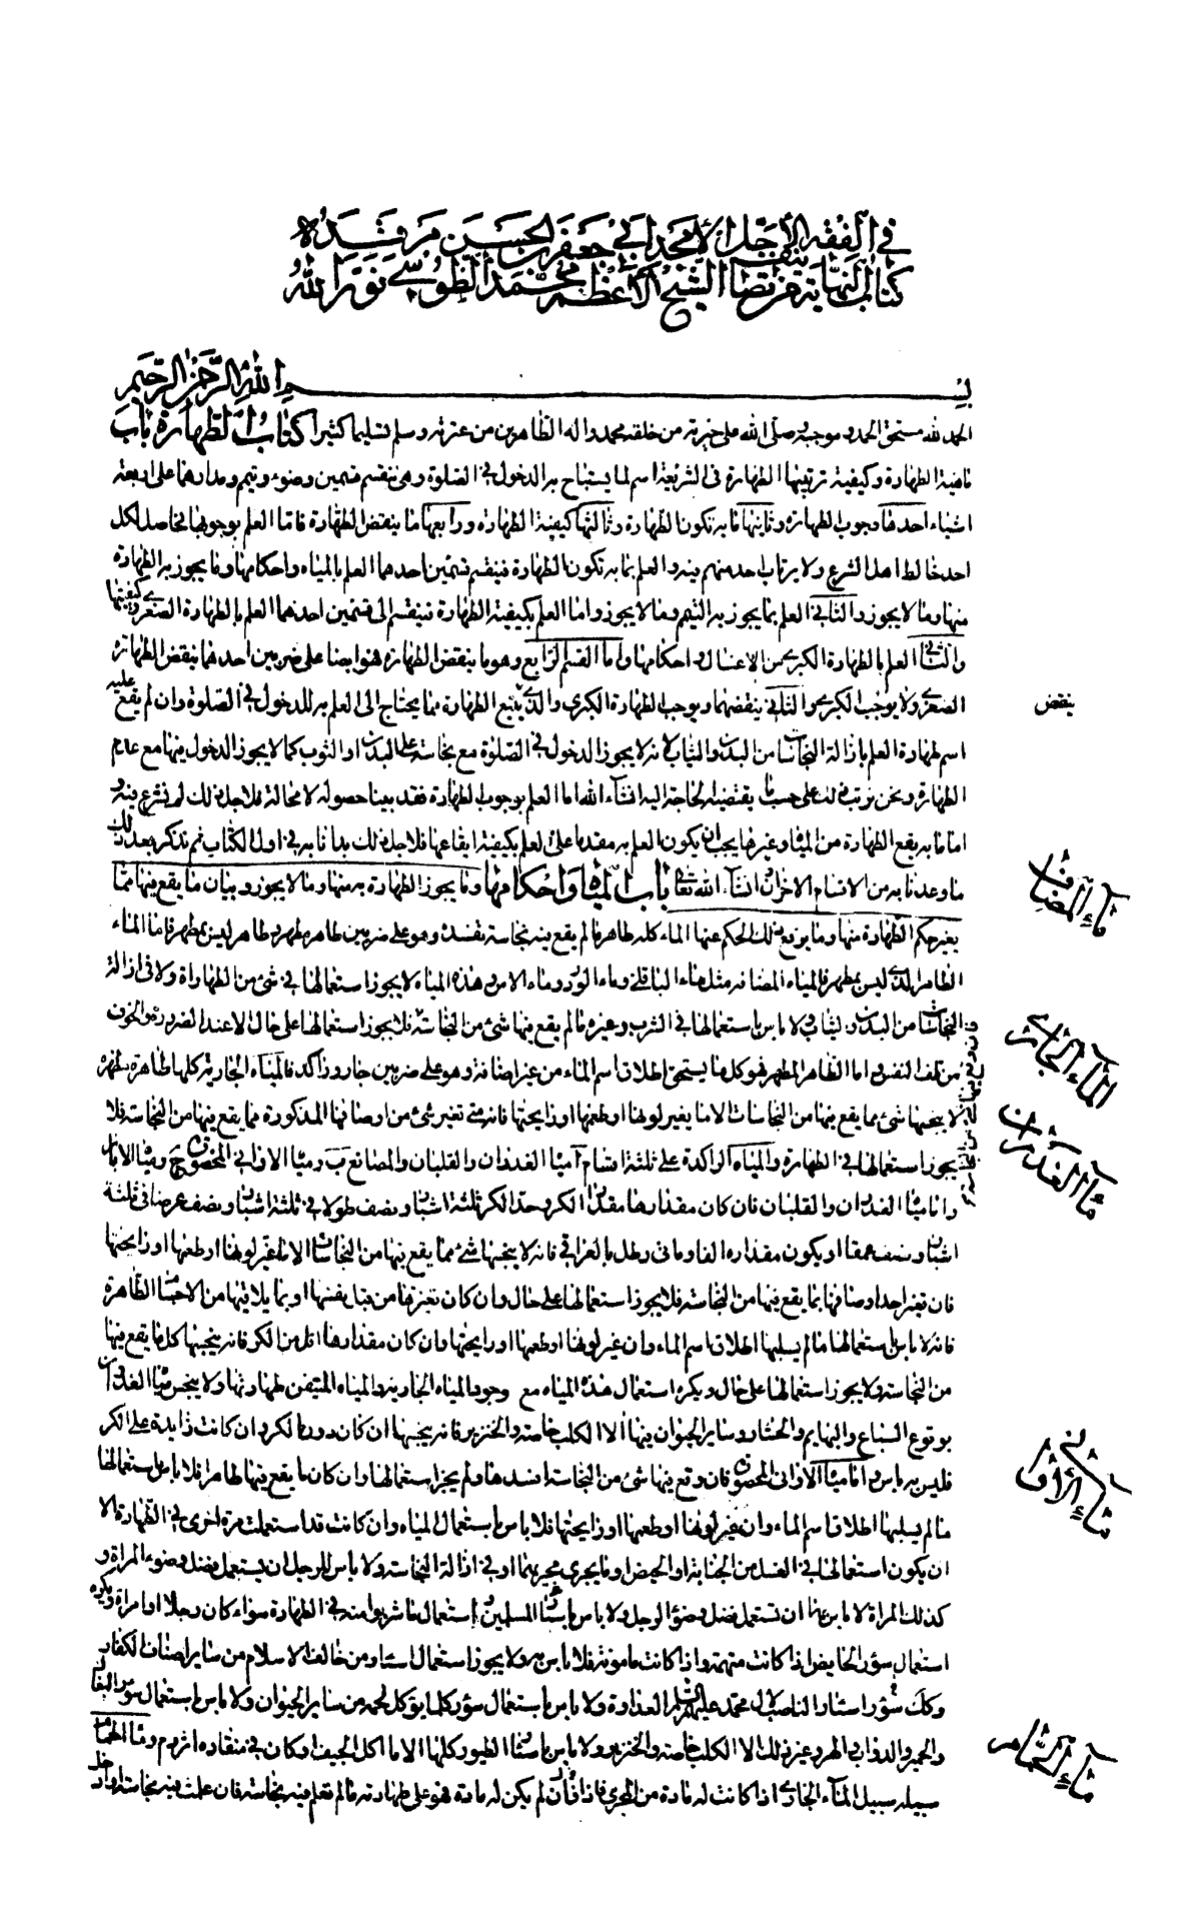 في الفقه الأجل الأمجد أبي جعفر بن الحسن مرقده
كتاب النهاية من تصانيف الشيخ الأعظم محمد الطوسي نور الله
بسم الله الرحمن الرحيم
الحمد لله مستحق الحمد وموجبه وصلى الله على خيرته من خلقه محمد واله الطاهرين من عترته وسلم تسليما كثيرا كتاب الطهارة باب
ماهية الطهارة وكيفية ترتيبها الطهارة في الشريعة اسم لما يستباح به الدخول في الصلوة وهي تنقسم قسمين وضوء وتيمم ومدارهما على اربعة
اشياء احدها وجوب الطهارة وثانيها ما به تكون الطهارة وثالثها كيفية الطهارة ورابعها ما ينقض الطهارة فاما العلم بوجوبها فحاصل لكل
احد خالط اهل الشرع ولا يرتاب احد منهم فيه والعلم بما به تكون الطهارة فينقسم قسمين احدهما العلم بالمياه واحكامها وما يجوز به الطهارة
منها وما لا يجوز والثاني العلم بما يجوز به التيمم وما لا يجوز واما العلم بكيفية الطهارة فينقسم الى قسمين احدهما العلم بالطهارة الصغرى وكيفيتها
والثاني العلم بالطهارة الكبرى من الاغسال واحكامها واما القسم الرابع وهو ما ينقض الطهارة فهو ايضا على ضربين احدهما ينقض الطهارة
الصغرى ولا يوجب الكبرى والثاني ينقضهما ويوجب الطهارة الكبرى والذي يتبع الطهارة مما يحتاج الى العلم به للدخول في الصلوة وان لم يقع عليه
ينقض
اسم طهارة العلم بازالة النجاسات من البدن والثياب لانه لا يجوز الدخول في الصلوة مع نجاسة على البدن او الثوب كما لا يجوز الدخول فيها مع عدم
الطهارة ونحن نرتب ذلك على حسب ما يقتضيه الحاجة اليه انشاء الله اما العلم بوجوب الطهارة فقد بينا حصوله لا محالة فلاجل ذلك لم نشرع فيه و
اما ما به يقع الطهارة من المياه وغيرها يجب ان يكون العلم به مقدما على العلم بكيفية ايقاعها فلاجل ذلك بدانا به في اول الكتاب ثم نذكر بعد ذلك
ما وعدنا به من الاقسام الاخر ان شاء الله تعالى باب المياه واحكامها وما يجوز الطهارة به منها وما لا يجوز وبيان ما يقع فيها مما
ماء المضاف
يغير حكم الطهارة منها وما يرفع ذلك الحكم عنها الماء كله طاهر ما لم يقع فيه نجاسة تفسده وهو على ضربين طاهر مطهر وطاهر ليس بمطهر فاما الماء
الطاهر الذي ليس بمطهر فالمياه المضافة مثل ماء الباقلى وماء الورد وماء الاس فهذه المياه لا يجوز استعمالها في شئ من الطهارات ولا في ازالة
النجاسات من البدن والثياب ولا باس باستعمالها في الشرب وغيره ما لم يقع فيها شئ من النجاسة فلا يجوز استعمالها على حال الا عند الضرورة والخوف
فان وقع فيها شئ من النجاسة
الماء الجاري
من تلف النفس واما الطاهر المطهر فهو كل ما يستحق اطلاق اسم الماء من غير اضافة وهو على ضربين جار وراكد فالمياه الجارية كلها طاهرة مطهرة
لا ينجسها شئ مما يقع فيها من النجاسات الا ما يغير لونها او طعمها او رايحتها فانه متى تغير شئ من اوصافها المذكورة مما يقع فيها من النجاسة فلا
ماء الغدران
يجوز استعمالها في الطهارة والمياه الراكدة على ثلثة اقسام مياه الغدران والقلبان والمصانع ب ومياه الاواني المحصورة ج ومياه الابار
واما مياه الغدران والقلبان فان كان مقدارها مقدار الكر وحد الكر ثلثة اشبار ونصف طولا في ثلثة اشبار ونصف عرضا في ثلثة
اشبار ونصف عمقا او يكون مقداره الفا ومائتي رطل بالعراقي فانه لا ينجسها شئ مما يقع فيها من النجاسات الا ما غير لونها او طعمها او رايحتها
فان تغير احد اوصافها بما يقع فيها من النجاسة فلا يجوز استعمالها على حال وان كان تغيرها من قبل نفسها او بما يلاقيها من الاجسام الطاهرة
فانه لا باس باستعمالها ما لم يسلبها اطلاق اسم الماء وان غير لونها او طعمها او رايحتها وان كان مقدارها اقل من الكر فانه ينجسها كل ما يقع فيها
من النجاسة ولا يجوز استعمالها على حال ويكره استعمال هذه المياه مع وجود المياه الجارية والمياه المتيقن طهارتها ولا ينجس مياه الغدران
بوقوع السباع والبهايم والحشار وساير الحيوان فيها الا الكلب خاصة والخنزير فانه ينجسها ان كان دون الكر وان كانت زايدة على الكر
فليس به باس واما مياه الاواني المحصورة فان وقع فيها شئ من النجاسة افسدها ولم يجز استعمالها وان كان ما يقع فيها طاهرا فلا باس باستعمالها
ماء الأواني
ما لم يسلبها اطلاق اسم الماء وان غير لونها او طعمها او رايحتها فلا باس باستعمال المياه وان كانت قد استعملت مرة اخرى في الطهارة الا
ان يكون استعمالها في الغسل من الجنابة او الحيض او ما يجرى مجريهما او في ازالة النجاسة ولا باس للرجل ان يستعمل فضل وضوء المراة و
كذلك المراة لا باس بها ان تستعمل فضل وضوء الرجل ولا باس باسئار المسلمين استعمال ما شربوا منه في الطهارة سواء كان رجلا او امراة ويكره
استعمال سؤر الحايض اذا كانت متهمة واذا كانت مامونة فلا باس به ولا يجوز استعمال اسئار من خالف الاسلام من ساير اصناف الكفار
وكذلك اسئار الناصب لال محمد عليهم السلم العداوة ولا باس باستعمال سؤر كل ما يؤكل لحمه من ساير الحيوان ولا باس باستعمال سؤر البغال
والحمير والدواب والهر وغير ذلك الا الكلب خاصة والخنزير ولا باس باسئار الطيور كلها الا ما اكل الجيف او كان في منقاره اثر دم وماء الحمام
ماء الحمام
سبيله سبيل الماء الجاري اذا كانت له مادة من المجرى فاذا لم يكن له مادة فهو على طهارته ما لم تعلم فيه نجاسة فان علمت فيه نجاسة او دخل